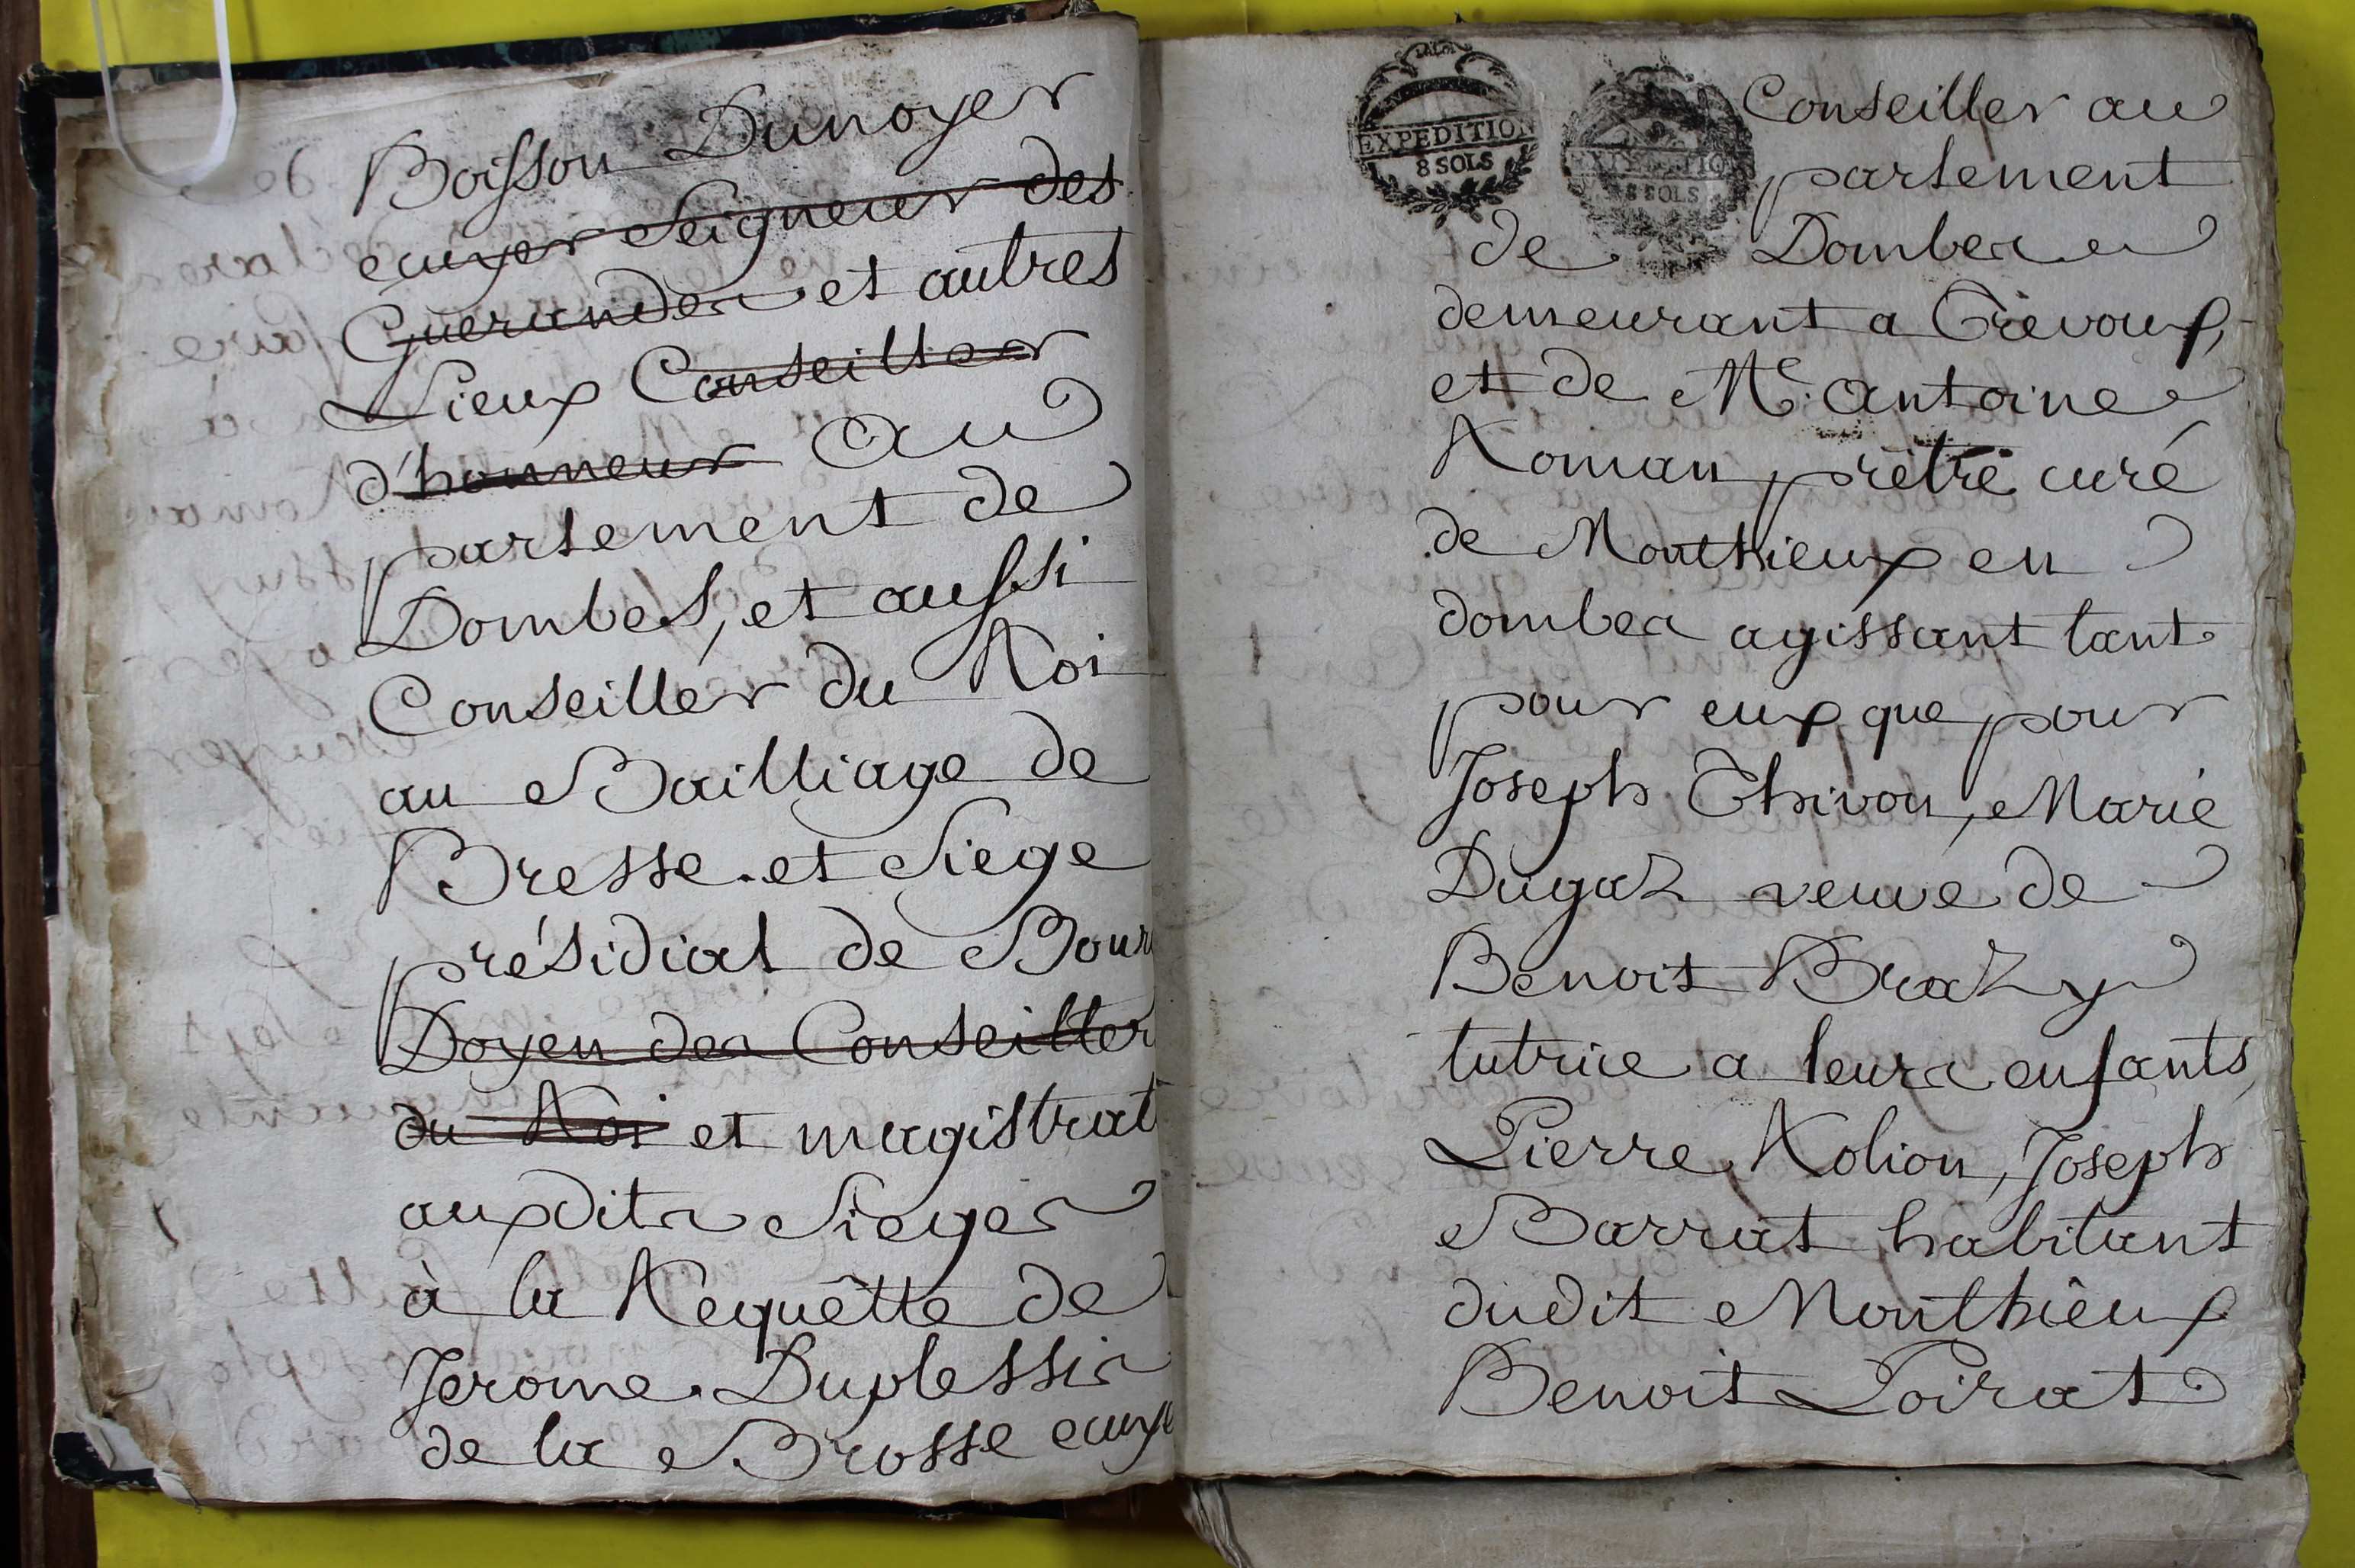 Boisson Dunoyer
ecuyer Seigneur des
Guerandes et autres
Lieux Conseiller
d'honneur au
parlement de
Dombes, et aussi
Conseiller du Roi
au Bailliage de
Bresse et Siege
présidial de Bour
Doyen des Conseiller
du Roi et magistrat
auxdits Sieges
à la Requêtte de
Jerome Duplessis
de la Brosse ecuye
EXPEDITION
8 SOLS
EXPEDITIO
8 SOLS
Conseiller au
parlement
de Dombes
demeurant a Trévoux,
et de Me. antoine
Roman prêtre curé
de Monthieux en
dombes agissant tant
pour eux que pour
Joseph Thivon, Marie
Dugaz veuve de
Benoit Brazy
tutrice a leurs enfants,
Pierre Rolion, Joseph
Barrat habitant
dudit Monthieux
Benoit Loirat